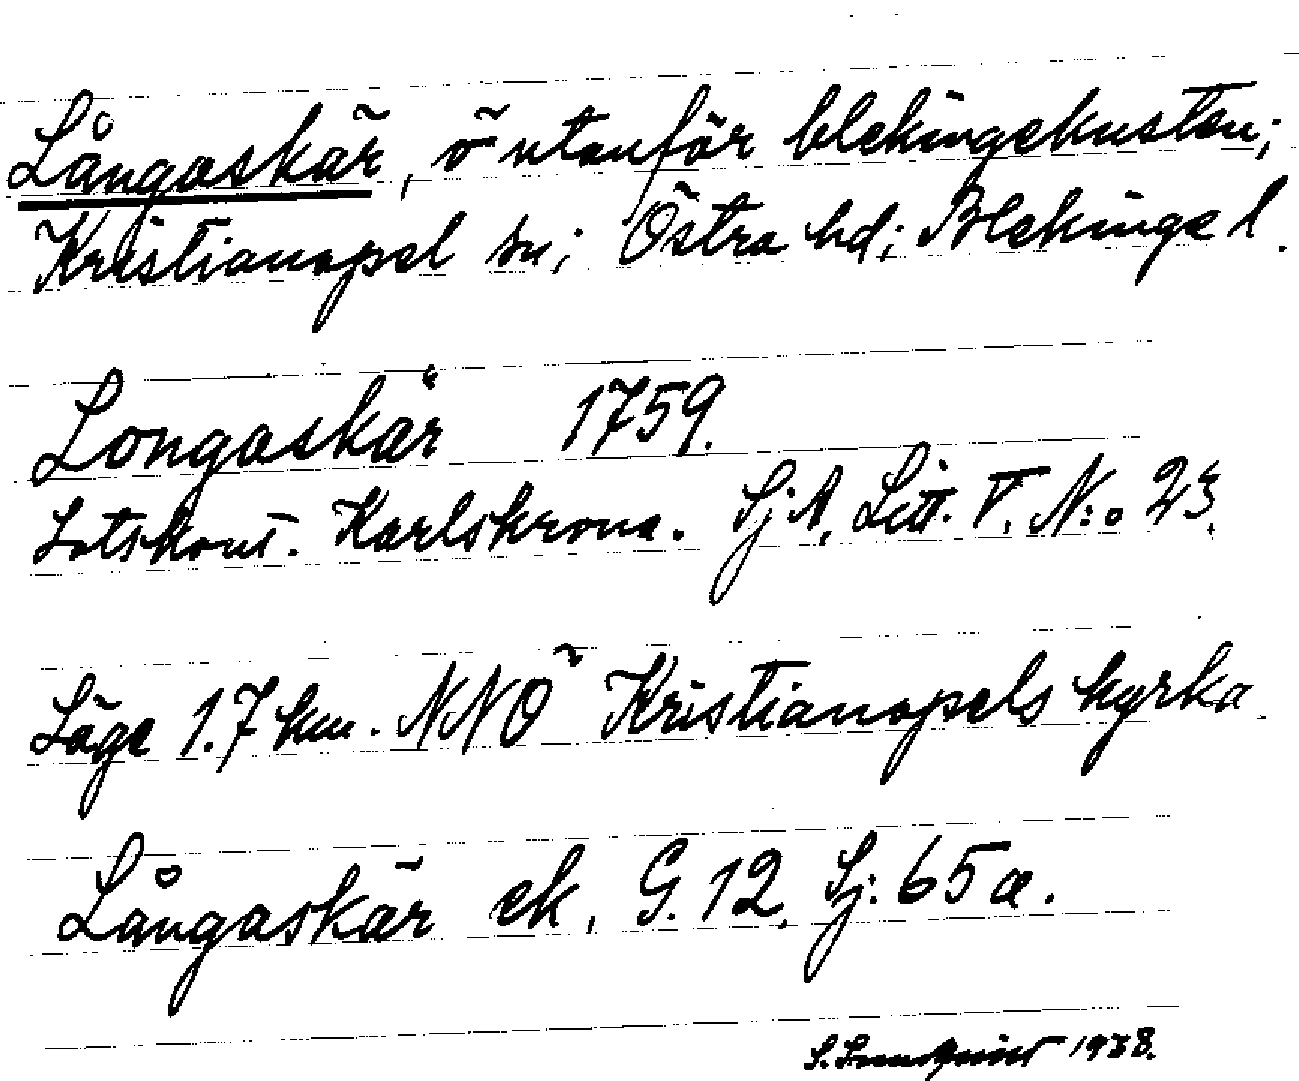 Långaskär, ö utanför blekingekusten;
Kristianopel sn; Östra hd; Blekinge l.
Longaskär 1759.
Lotskont. Karlskrona. SjA, Litt. V. N:o 23.
Läge 1.7 km. NNO Kristianopels kyrka.
Långaskär ek, G. 12, Sj: 65 a.
1938.